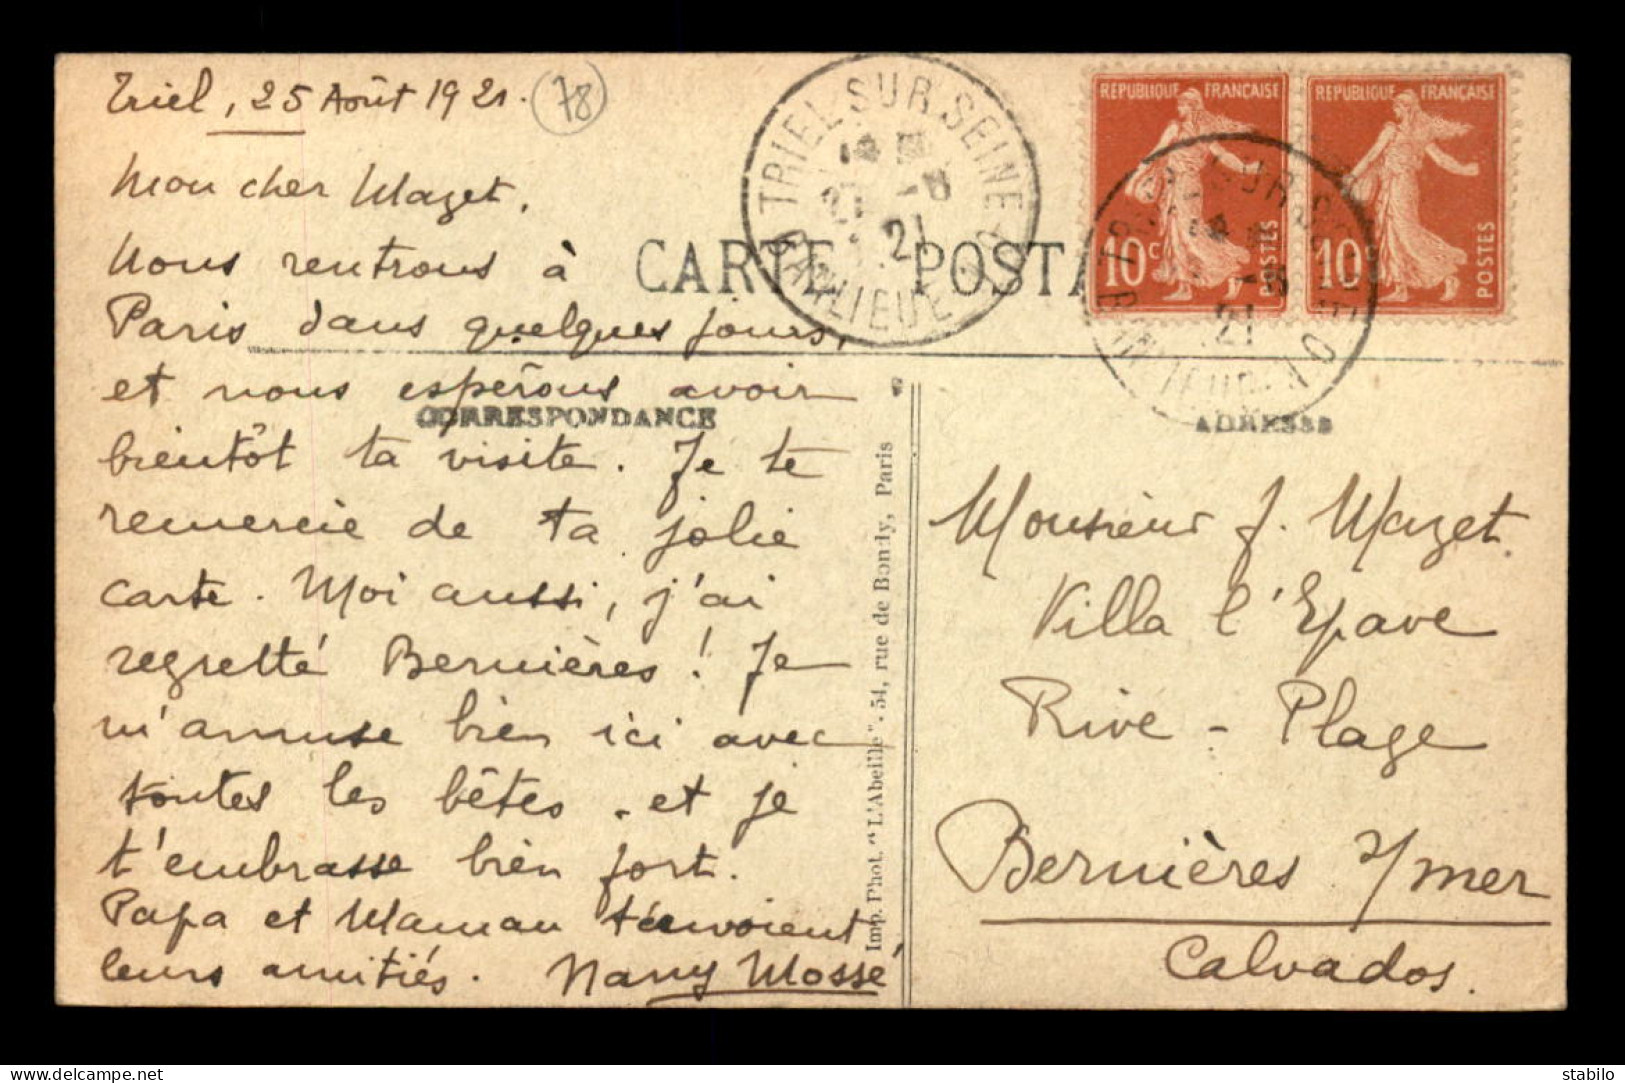 Triel, 25 Août 1921.
78
Mon cher Mazet,
Nous rentrons à
Paris dans quelques jours,
et nous espérons avoir
bientôt ta visite. Je te
remercie de ta jolie
carte. Moi aussi, j'ai
regretté Bernières! Je
m'amuse bien ici avec
toutes les bêtes - et je
t'embrasse bien fort.
Papa et Maman t'envoient
leurs amitiés. Nany Mossé
CARTE POSTA
CORRESPONDANCE
ADRESSE
TRIEL-SUR-SEINE
21
REPUBLIQUE FRANÇAISE
10c
POSTES
REPUBLIQUE FRANÇAISE
10c
POSTES
21
Imp. Phot. "L'Abeille" - 54, rue de Bondy, Paris
Monsieur J. Mazet.
Villa l'Epave
Rive - Plage
Bernières s/mer
Calvados.
delcampe.net
stabilo